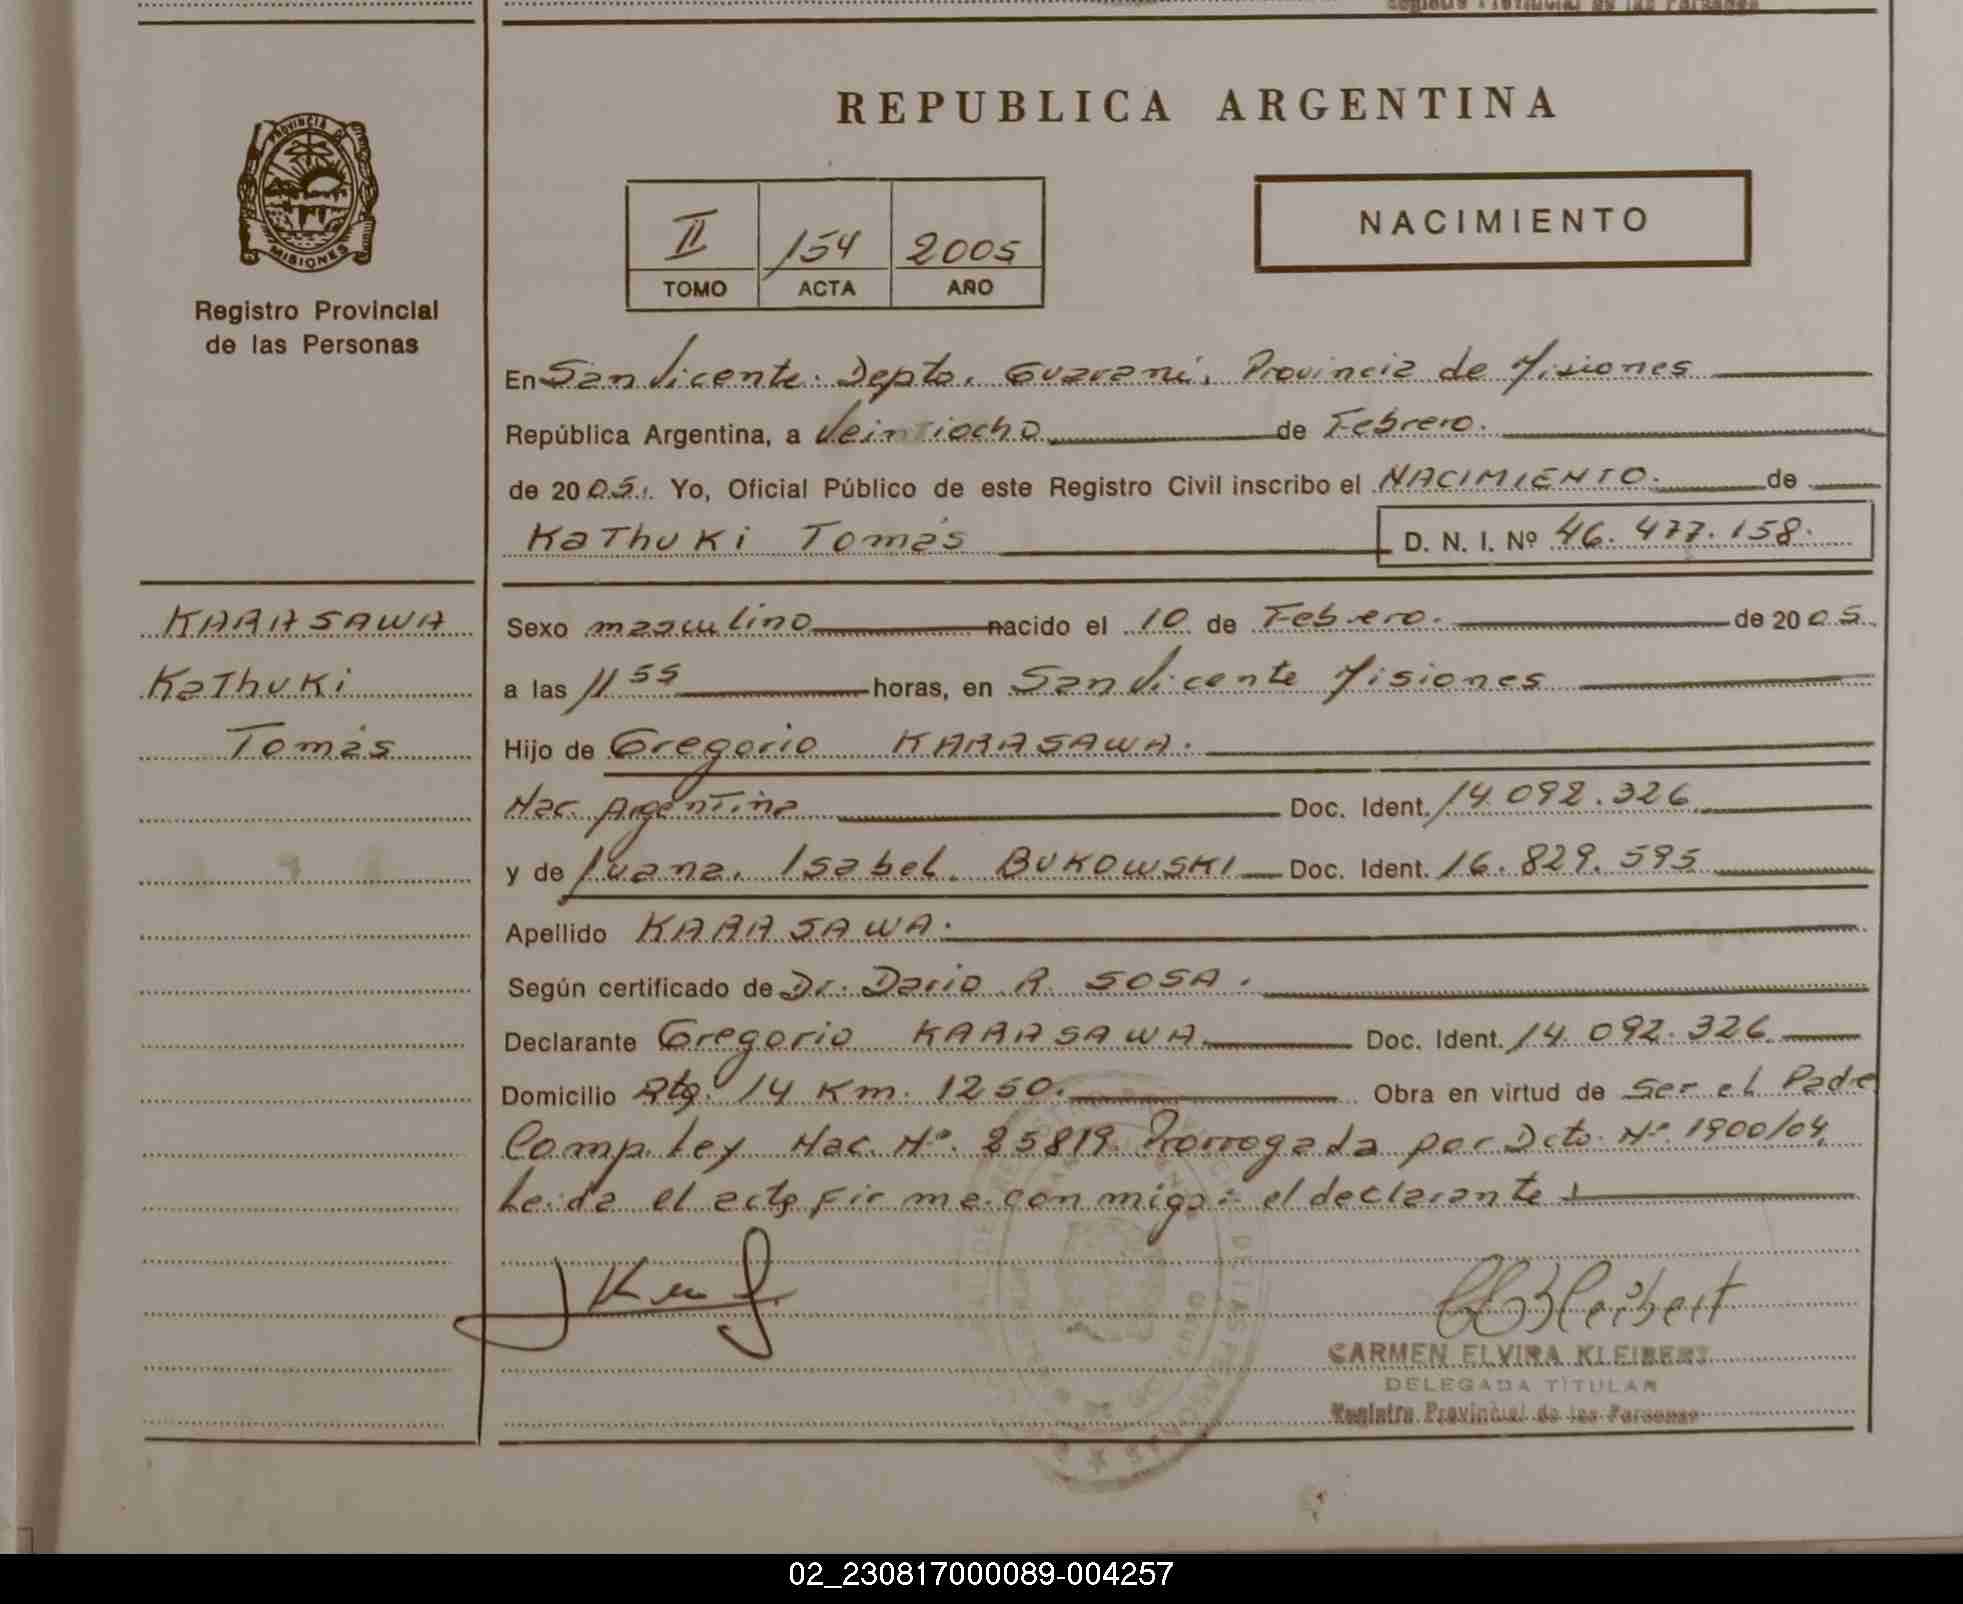 REPUBLICA ARGENTINA
PROVINCIA DE
MISIONES
Registro Provincial
de las Personas
II 154 2005
TOMO ACTA AÑO
NACIMIENTO
En San Vicente. Depto. Guaraní, Provincia de Misiones
República Argentina, a Veintiocho de Febrero.
de 2005. Yo, Oficial Público de este Registro Civil inscribo el NACIMIENTO. de
Kathuki Tomás D. N. I. Nº 46.477.158.
KARASAWA
Kathuki
Tomás
Sexo masculino nacido el 10 de Febrero. de 2005.
a las 11 55 horas, en San Vicente Misiones
Hijo de Gregorio KARASAWA.
Nac. Argentina Doc. Ident. 14.092.326
y de Juana Isabel BUKOWSKI Doc. Ident. 16.829.595
Apellido KARASAWA.
Según certificado de Dr. Dario R. SOSA.
Declarante Gregorio KARASAWA Doc. Ident. 14.092.326
Domicilio Rta. 14 Km. 1250. Obra en virtud de Ser el Padre
Comp. Ley Nac. Nº. 25819. Prorrogada por Dcto. Nº 1900/04
Leída el acta firma conmigo: el declarante
CARMEN ELVIRA KLEIBERT
DELEGADA TITULAR
Registro Provincial de las Personas
02_230817000089-004257